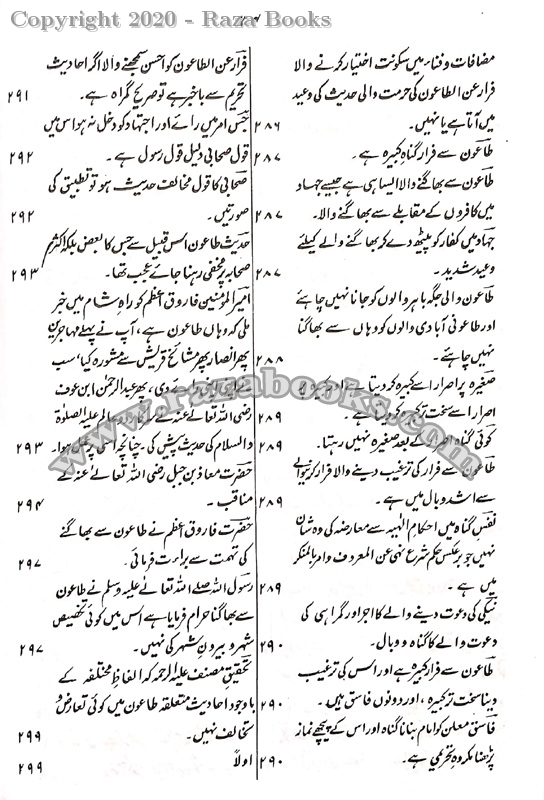 Copyright 2020 - Raza Books
مضافات و فناء میں سکونت اختیار کرنے والا
فرار عن الطاعون کی حرمت والی حدیث کی وعید
میں آتا ہے یا نہیں۔ ۲۸۶
طاعون سے فرار گناہِ کبیرہ ہے۔ ۲۸۷
طاعون سے بھاگنے والا ایسا ہی ہے جیسے جہاد
میں کافروں کے مقابلے سے بھاگنے والا۔ ۲۸۷
جہاد میں کفار کو پیٹھ دے کر بھاگنے والے کیلئے
وعید شدید۔ ۲۸۷
طاعون والی جگہ باہر والوں کو جانا نہیں چاہئے
اور طاعونی آبادی والوں کو وہاں سے بھاگنا
نہیں چاہئے۔ ۲۸۸
صغیرہ پر اصرار اسے کبیرہ کر دیتا ہے اور کبیرہ پر
اصرار اسے سخت تر کبیرہ کر دیتا ہے۔ ۲۸۹
کوئی گناہ اصرار کے بعد صغیرہ نہیں رہتا۔ ۲۸۹
طاعون سے فرار کی ترغیب دینے والا فرار کرنیوالے
سے اشد وبال میں ہے۔ ۲۸۹
نفس گناہ میں احکامِ الٰہیہ سے معارضہ کی وہ شان
نہیں جو برعکس حکم شرع نہی عن المعروف و امر بالمنکر
میں ہے۔ ۲۸۹
نیکی کی دعوت دینے والے کا اجر اور گمراہی کی
دعوت والے کا گناہ و وبال۔ ۲۹۰
طاعون سے فرار کبیرہ ہے اور اس کی ترغیب
دینا سخت تر کبیرہ، اور دونوں فاسق ہیں۔ ۲۹۰
فاسق معلن کو امام بنانا گناہ اور اس کے پیچھے نماز
پڑھنا مکروہ تحریمی ہے۔ ۲۹۰
فرار عن الطاعون کو احسن سمجھنے والا اگر احادیث
تحریم سے باخبر ہے تو صریح گمراہ ہے۔ ۲۹۱
جس امر میں رائے اور اجتہاد کو دخل نہ ہو اس میں
قول صحابی دلیل قول رسول ہے۔ ۲۹۲
صحابی کا قول مخالف حدیث ہو تو تطبیق کی
صورتیں۔ ۲۹۲
حدیث طاعون اس قبیل سے جس کا بعض بلکہ اکثر
صحابہ پر مخفی رہنا جائے عجب تھا۔ ۲۹۳
امیر المومنین فاروق اعظم کو راہِ شام میں خبر
ملی کہ وہاں طاعون ہے، آپ نے پہلے مہاجرین
پھر انصار پھر مشائخ قریش سے مشورہ کیا، سب
نے اپنی اپنی رائے دی، پھر عبد الرحمٰن ابن عوف
رضی اللہ تعالیٰ عنہ نے علیہ الصلوٰۃ
والسلام کی حدیث پیش کی چنانچہ اسی پر عمل ہوا۔ ۲۹۳
حضرت معاذ بن جبل رضی اللہ تعالیٰ عنہ کے
مناقب۔ ۲۹۴
حضرت فاروق اعظم نے طاعون سے بھاگنے
کی تہمت سے براءت فرمائی۔ ۲۹۷
رسول اللہ صلے اللہ تعالےٰ علیہ وسلم نے طاعون
سے بھاگنا حرام فرمایا ہے اس میں کوئی تخصیص
شہر و بیرونِ شہر کی نہیں۔ ۲۹۷
تحقیقِ مصنف علیہ الرحمہ کہ الفاظِ مختلفہ کے
باوجود احادیث متعلقہ طاعون میں کوئی تعارض و
تخالف نہیں۔ ۲۹۹
اولاً ۲۹۹
www.razabooks.com